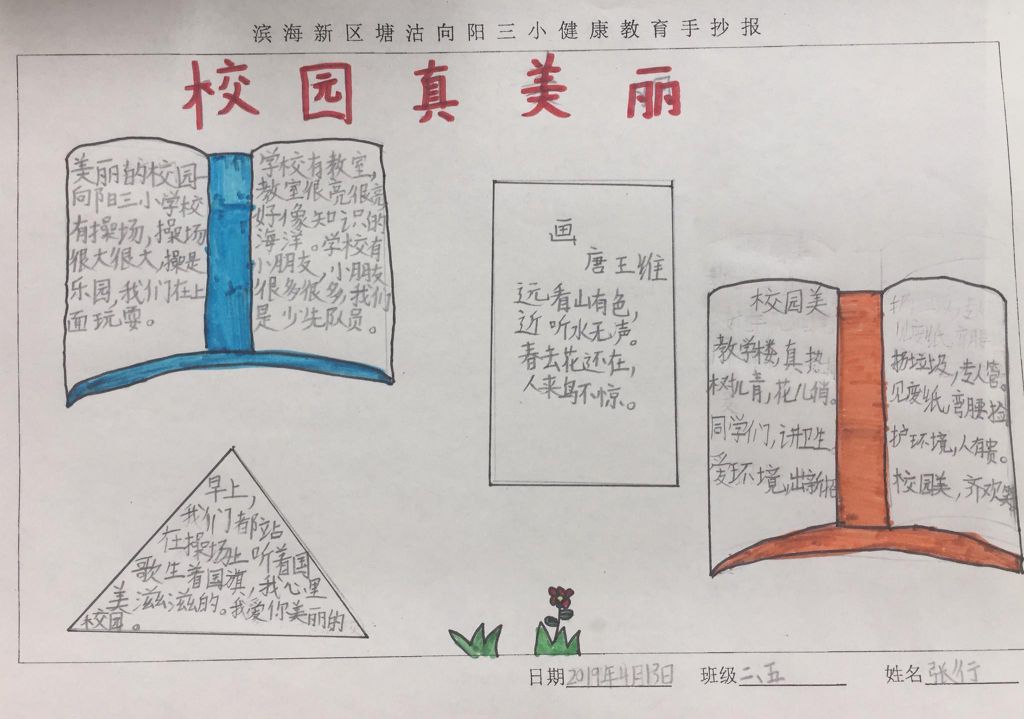 滨海新区塘沽向阳三小健康教育手抄报
校园真美丽
美丽的校园—
向阳三小学校
有操场,操场
很大很大,操是
乐园,我们在上
面玩耍。
学校有教室,
教室很亮很亮
好像知识的
海洋。学校有
小朋友,小朋友
很多很多,我们
是少先队员。
画
唐王维
远看山有色,
近听水无声。
春去花还在,
人来鸟不惊。
校园美
教学楼,真热
树儿青,花儿俏。
同学们,讲卫生
爱环境,出新招
扬垃圾,专人管。
见废纸,弯腰捡。
护环境,人有责。
校园美,齐欢笑
早上,
我们都站
在操场上听着国
歌生着国旗,我心里
美滋滋的。我爱你美丽的
校园。
日期2019年4月13日 班级二、五 姓名张行